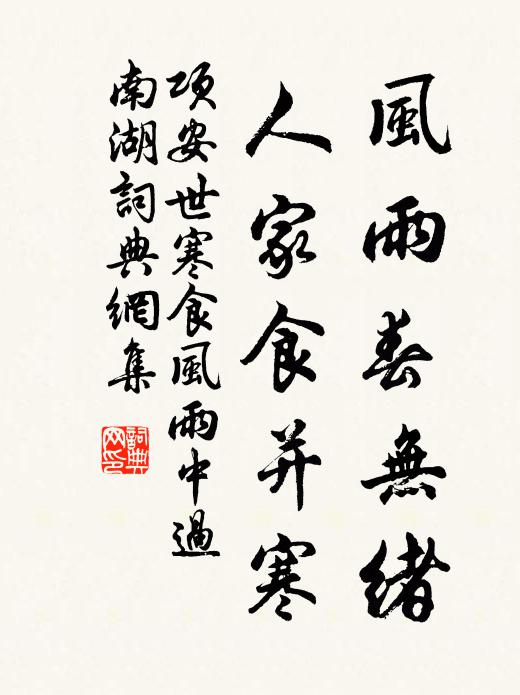 風雨春無緒
人家食并寒
項安世寒食風雨中過
南湖詞典網集
詞典
网印